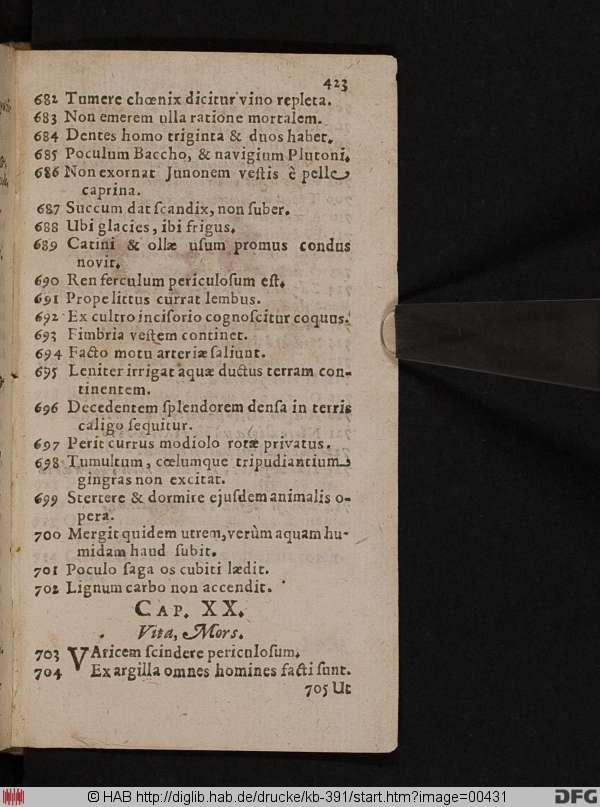 423
682 Tumere chœnix dicitur vino repleta.
683 Non emerem ulla ratione mortalem.
684 Dentes homo triginta & duos habet.
685 Poculum Baccho, & navigium Plutoni.
686 Non exornat Junonem veſtis è pelle
caprina.
687 Succum dat ſcandix, non ſuber.
688 Ubi glacies, ibi frigus.
689 Catini & ollæ uſum promus condus
novit.
690 Ren ferculum periculoſum eſt.
691 Prope littus currat lembus.
692 Ex cultro inciſorio cognoſcitur coquus.
693 Fimbria veſtem continet.
694 Facto motu arteriæ ſaliunt.
695 Leniter irrigat aquæ ductus terram con-
tinentem.
696 Decedentem ſplendorem denſa in terris
caligo ſequitur.
697 Perit currus modiolo rotæ privatus.
698 Tumultum, cœlumque tripudiantium
gingras non excitat.
699 Stertere & dormire ejuſdem animalis o-
pera.
700 Mergit quidem utrem, verùm aquam hu-
midam haud ſubit.
701 Poculo ſaga os cubiti lædit.
702 Lignum carbo non accendit.
CAP. XX.
Vita, Mors.
703 VAricem ſcindere pericnloſum.
704 Ex argilla omnes homines facti ſunt.
705 Ut
© HAB http://diglib.hab.de/drucke/kb-391/start.htm?image=00431
DFG